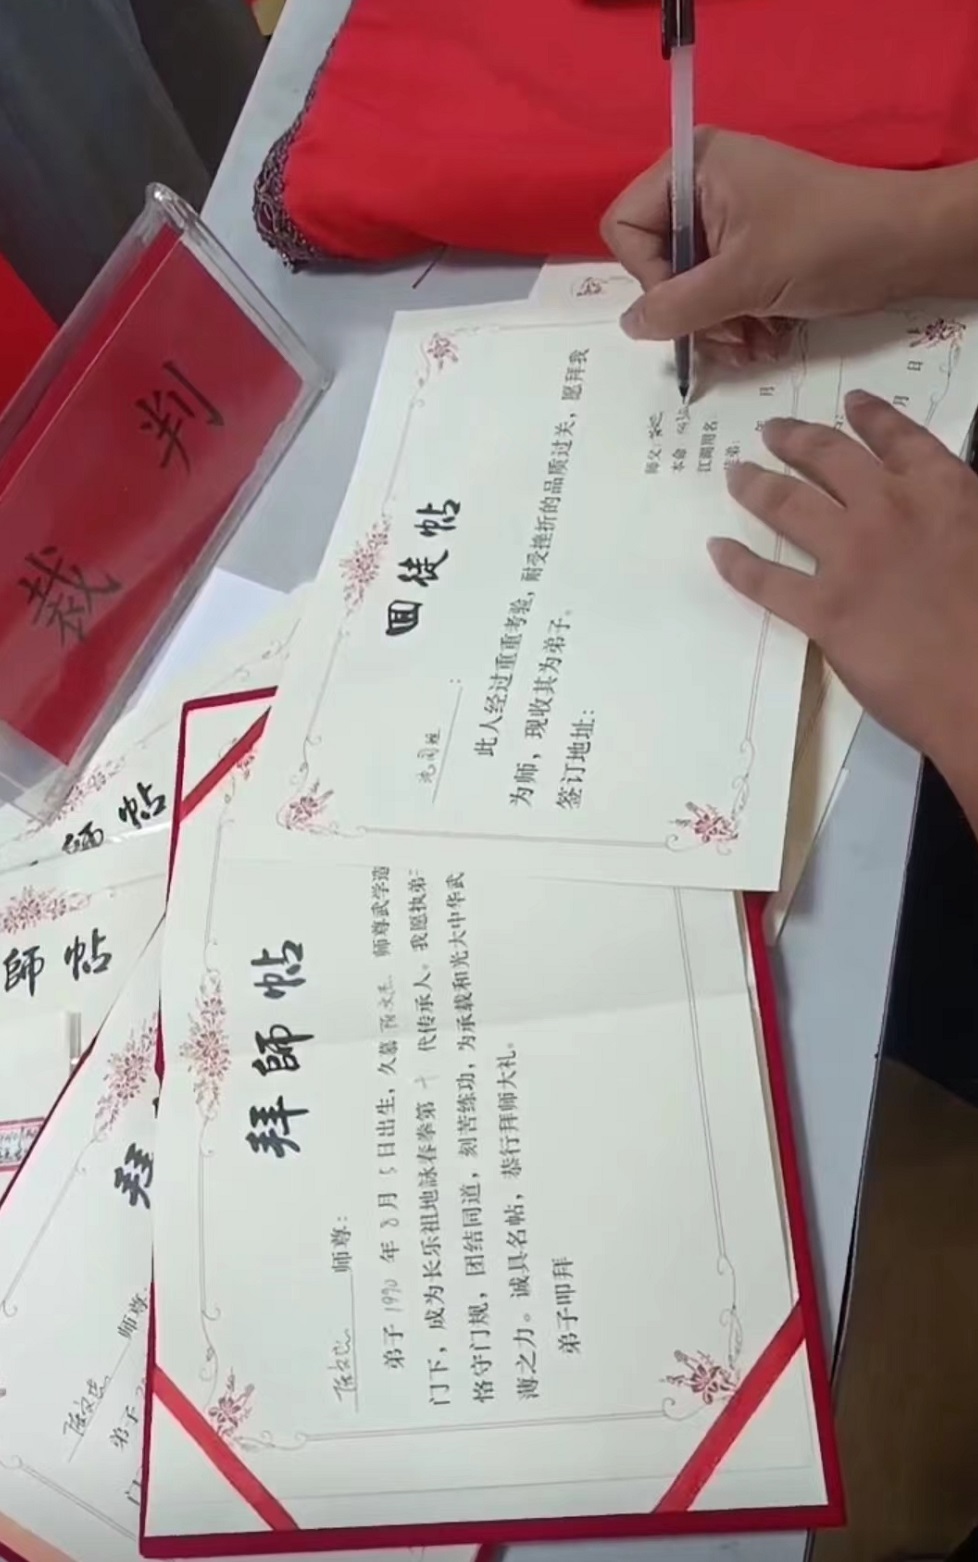 裁判
回徒帖
此人经过重重考验，耐受挫折的品质过关，愿拜我
为师，现收其为弟子。
签订地址：
师父：
本命
江湖用名：
徒弟：
年 月
月 日
拜師帖
陈文志 师尊：
弟子1990年8月5日出生，久慕 师尊武学造
门下，成为长乐祖地詠春拳第十代传承人。我愿执弟子
恪守门规，团结同道，刻苦练功，为承载和光大中华武
薄之力。诚具名帖，恭行拜师大礼。
弟子叩拜
師帖
師帖
拜
师尊：
弟子